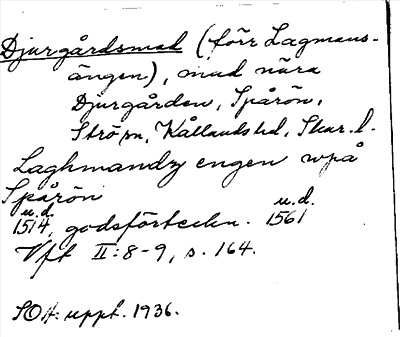 Djurgårdsmad (förr Lagmans-
ängen), mad nära
Djurgården, Spårön,
Strö sn, Kållands hd, Skar. l.
Laghmandz engen wpå
Spårön
u.d. u.d.
1514, godsförteckn. 1561
Vft II:8-9, s. 164.
SOH: uppt. 1936.